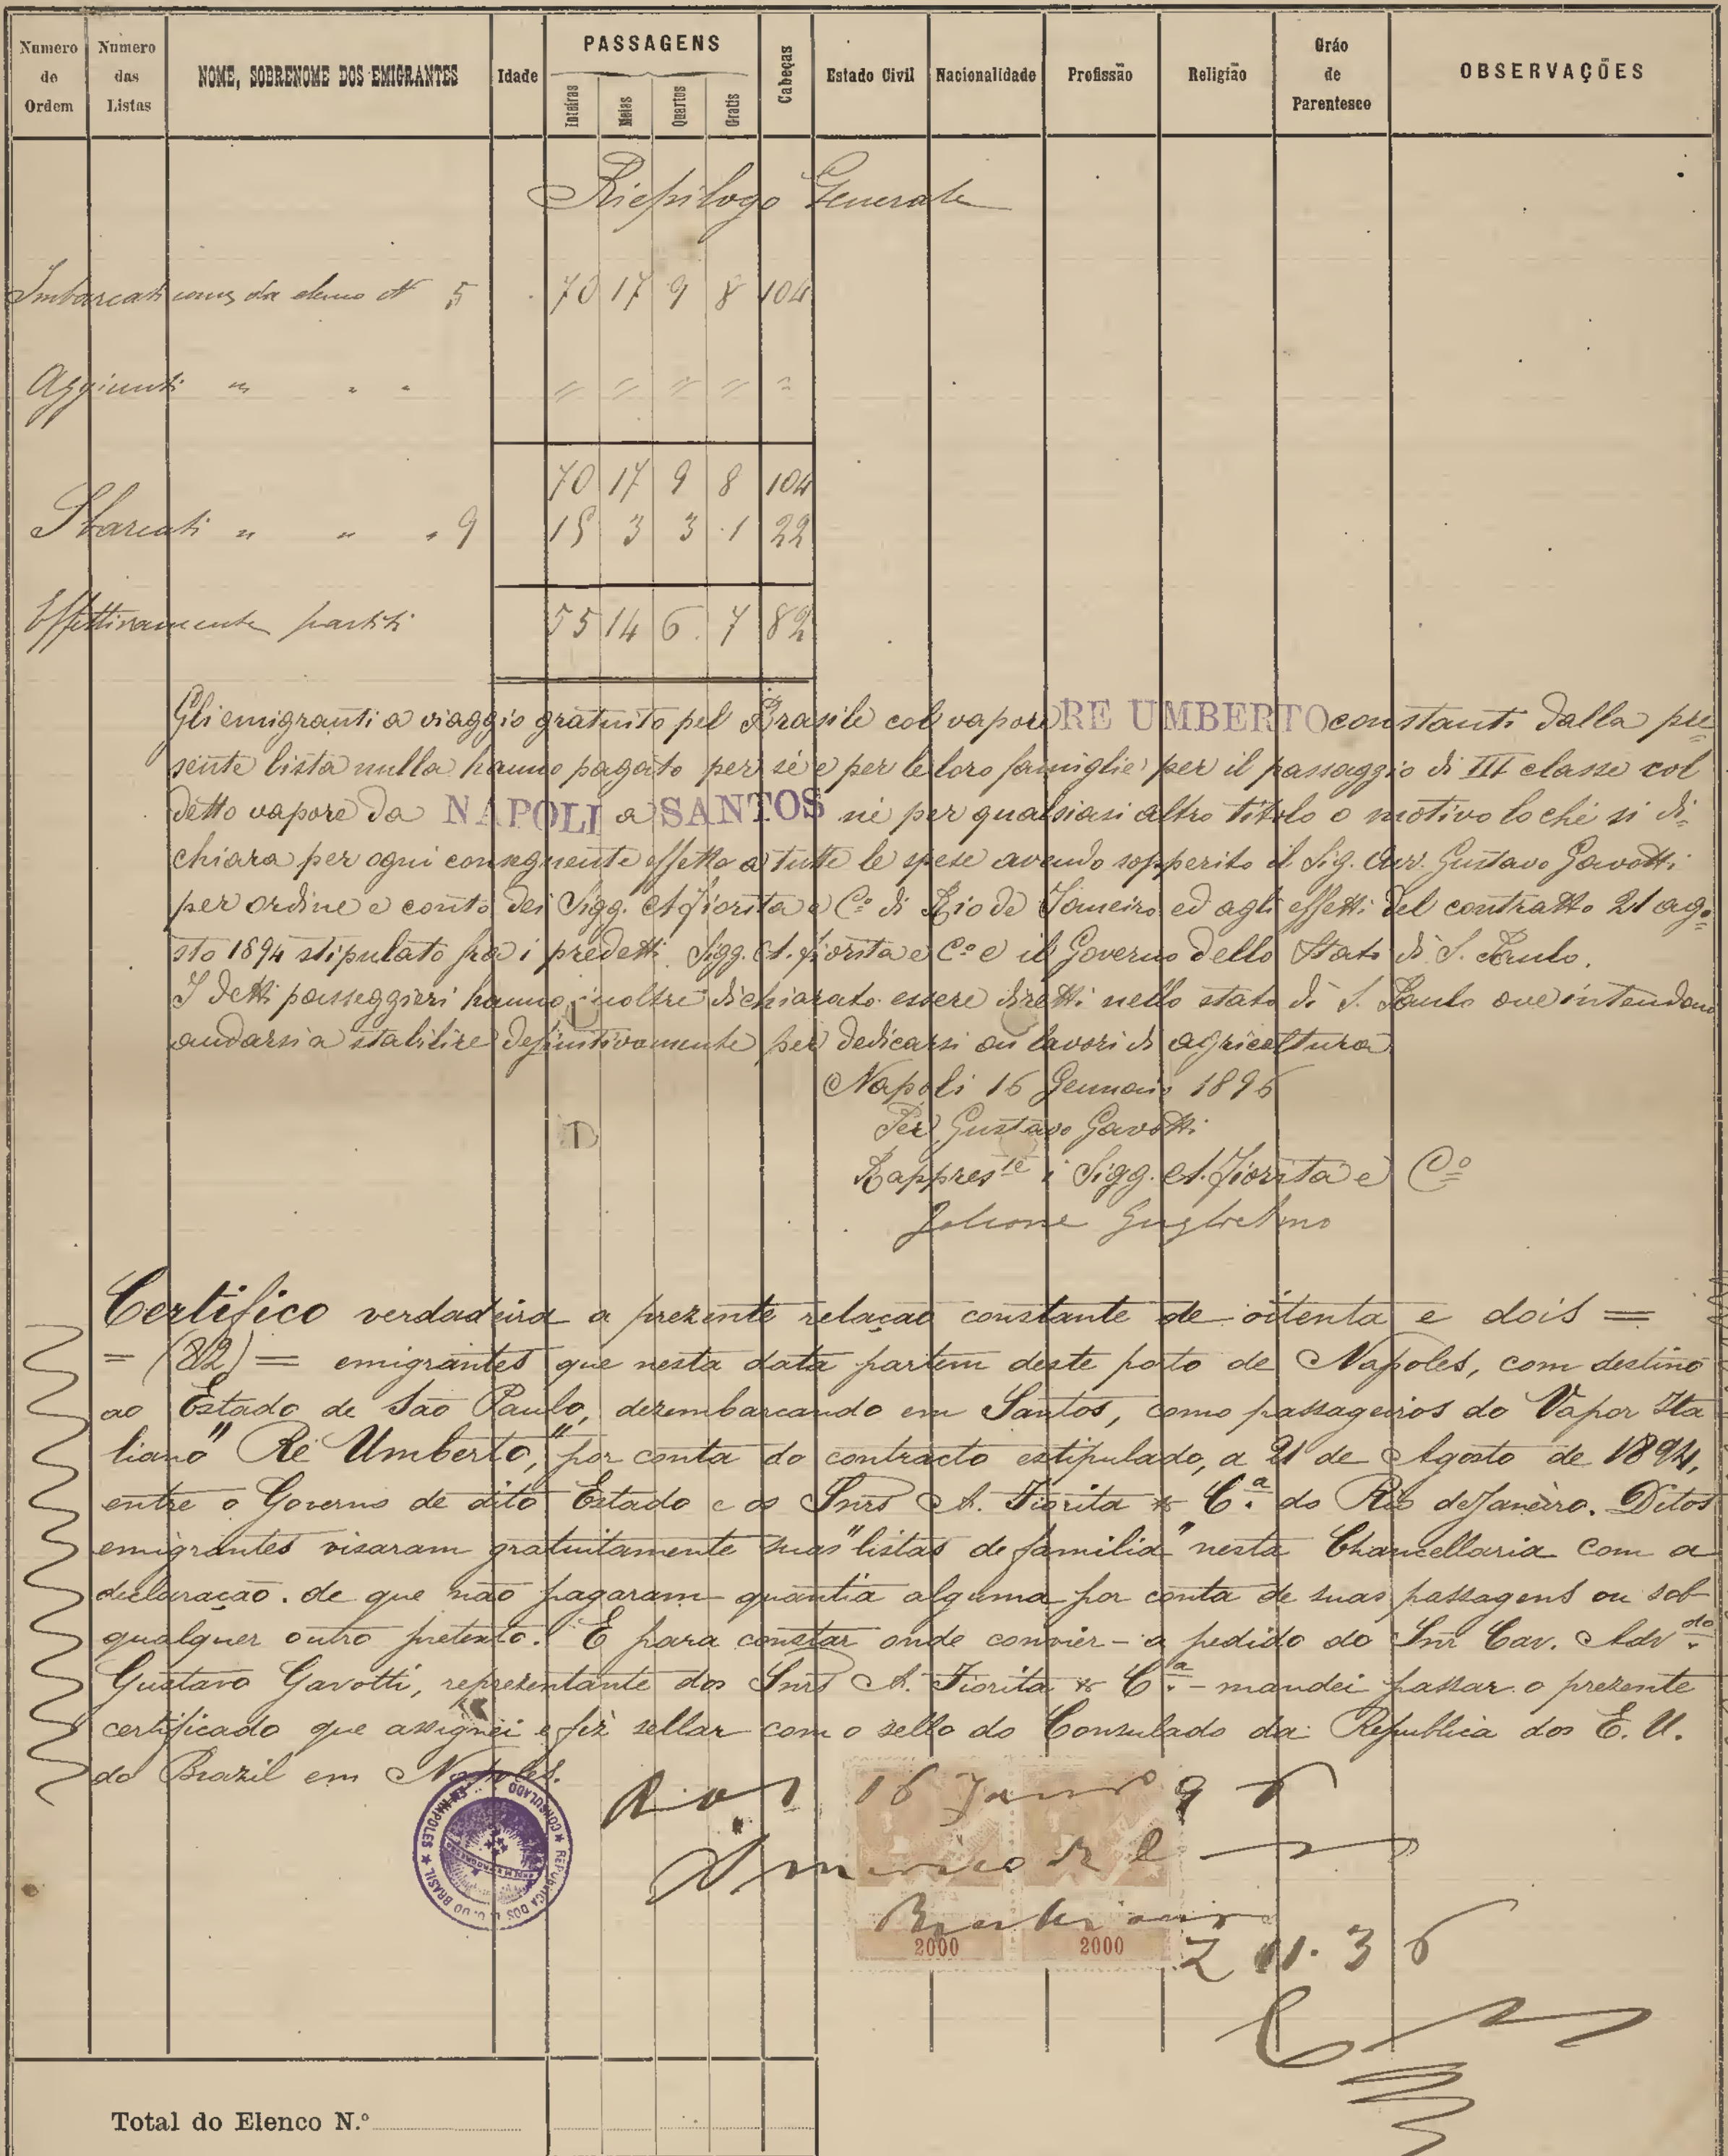 Numero de Ordem
Numero das Listas
NOME, SOBRENOME DOS EMIGRANTES
Idade
PASSAGENS
Inteiras
Meias
Quartos
Gratis
Cabeças
Estado Civil
Nacionalidade
Profissão
Religião
Gráo de Parentesco
OBSERVAÇÕES
Riepilogo Generale
Imbarcati come da elenco N 5 70 17 9 8 104
Aggiunti " " " " " " " "
70 17 9 8 104
Sbarcati " " " 9 15 3 3 1 22
Effettivamente partiti 55 14 6 7 82
Gli emigranti a viaggio gratuito pel Brasile col vapore RE UMBERTO constanti dalla pre=
sente lista nulla hanno pagato per sé e per le loro famiglie per il passaggio di III classe col
detto vapore da NAPOLI a SANTOS né per qualsiasi altro titolo o motivo lo che si di=
chiara per ogni conseguente effetto a tutte le spese avendo sopperito il Sig. Avv. Gustavo Gavotti
per ordine e conto dei Sigg. A. Fiorita e Cº di Rio de Janeiro ed agli effetti del contratto 21 ago=
sto 1894 stipulato fra i predetti Sigg. A. Fiorita e Cº e il Governo dello Stato di S. Paulo.
I detti passeggieri hanno inoltre dichiarato essere diretti nello stato di S. Paulo ove intendono
andarsi a stabilire definitivamente per dedicarsi ai lavori di agricoltura
Napoli 16 Gennaio 1896
Per Gustavo Gavotti
Rappres.te i Sigg. A. Fiorita e Cº
Guglielmo
Certifico verdadeira a prezente relaçao constante de oitenta e dois =
= (82) = emigrantes que nesta data partem deste porto de Napoles, com destino
ao Estado de São Paulo, dezembarcando em Santos, como passageiros do Vapor Ita
liano "Re Umberto," por conta do contracto estipulado, a 21 de Agosto de 1894,
entre o Governo de dito Estado e os Snrs A. Fiorita & C.ª do Rio de Janeiro. Ditos
emigrantes visaram gratuitamente suas "listas de familia" nesta Chancellaria com a
declaração de que não pagaram quantia alguma por conta de suas passagens ou sob
qualquer outro pretexto. E para constar onde convier - a pedido do Snr Cav. Adv.do
Gustavo Gavotti, reprezentante dos Snrs A. Fiorita & C.ª - mandei passar o prezente
certificado que assignei e fiz sellar com o sello do Consulado da Republica dos E. U.
do Brazil em Napoles.
16 Janro 96
CONSULADO EM NAPOLES ★ REPUBLICA DOS E. U. DO BRASIL ★
2000 2000
Total do Elenco N.º